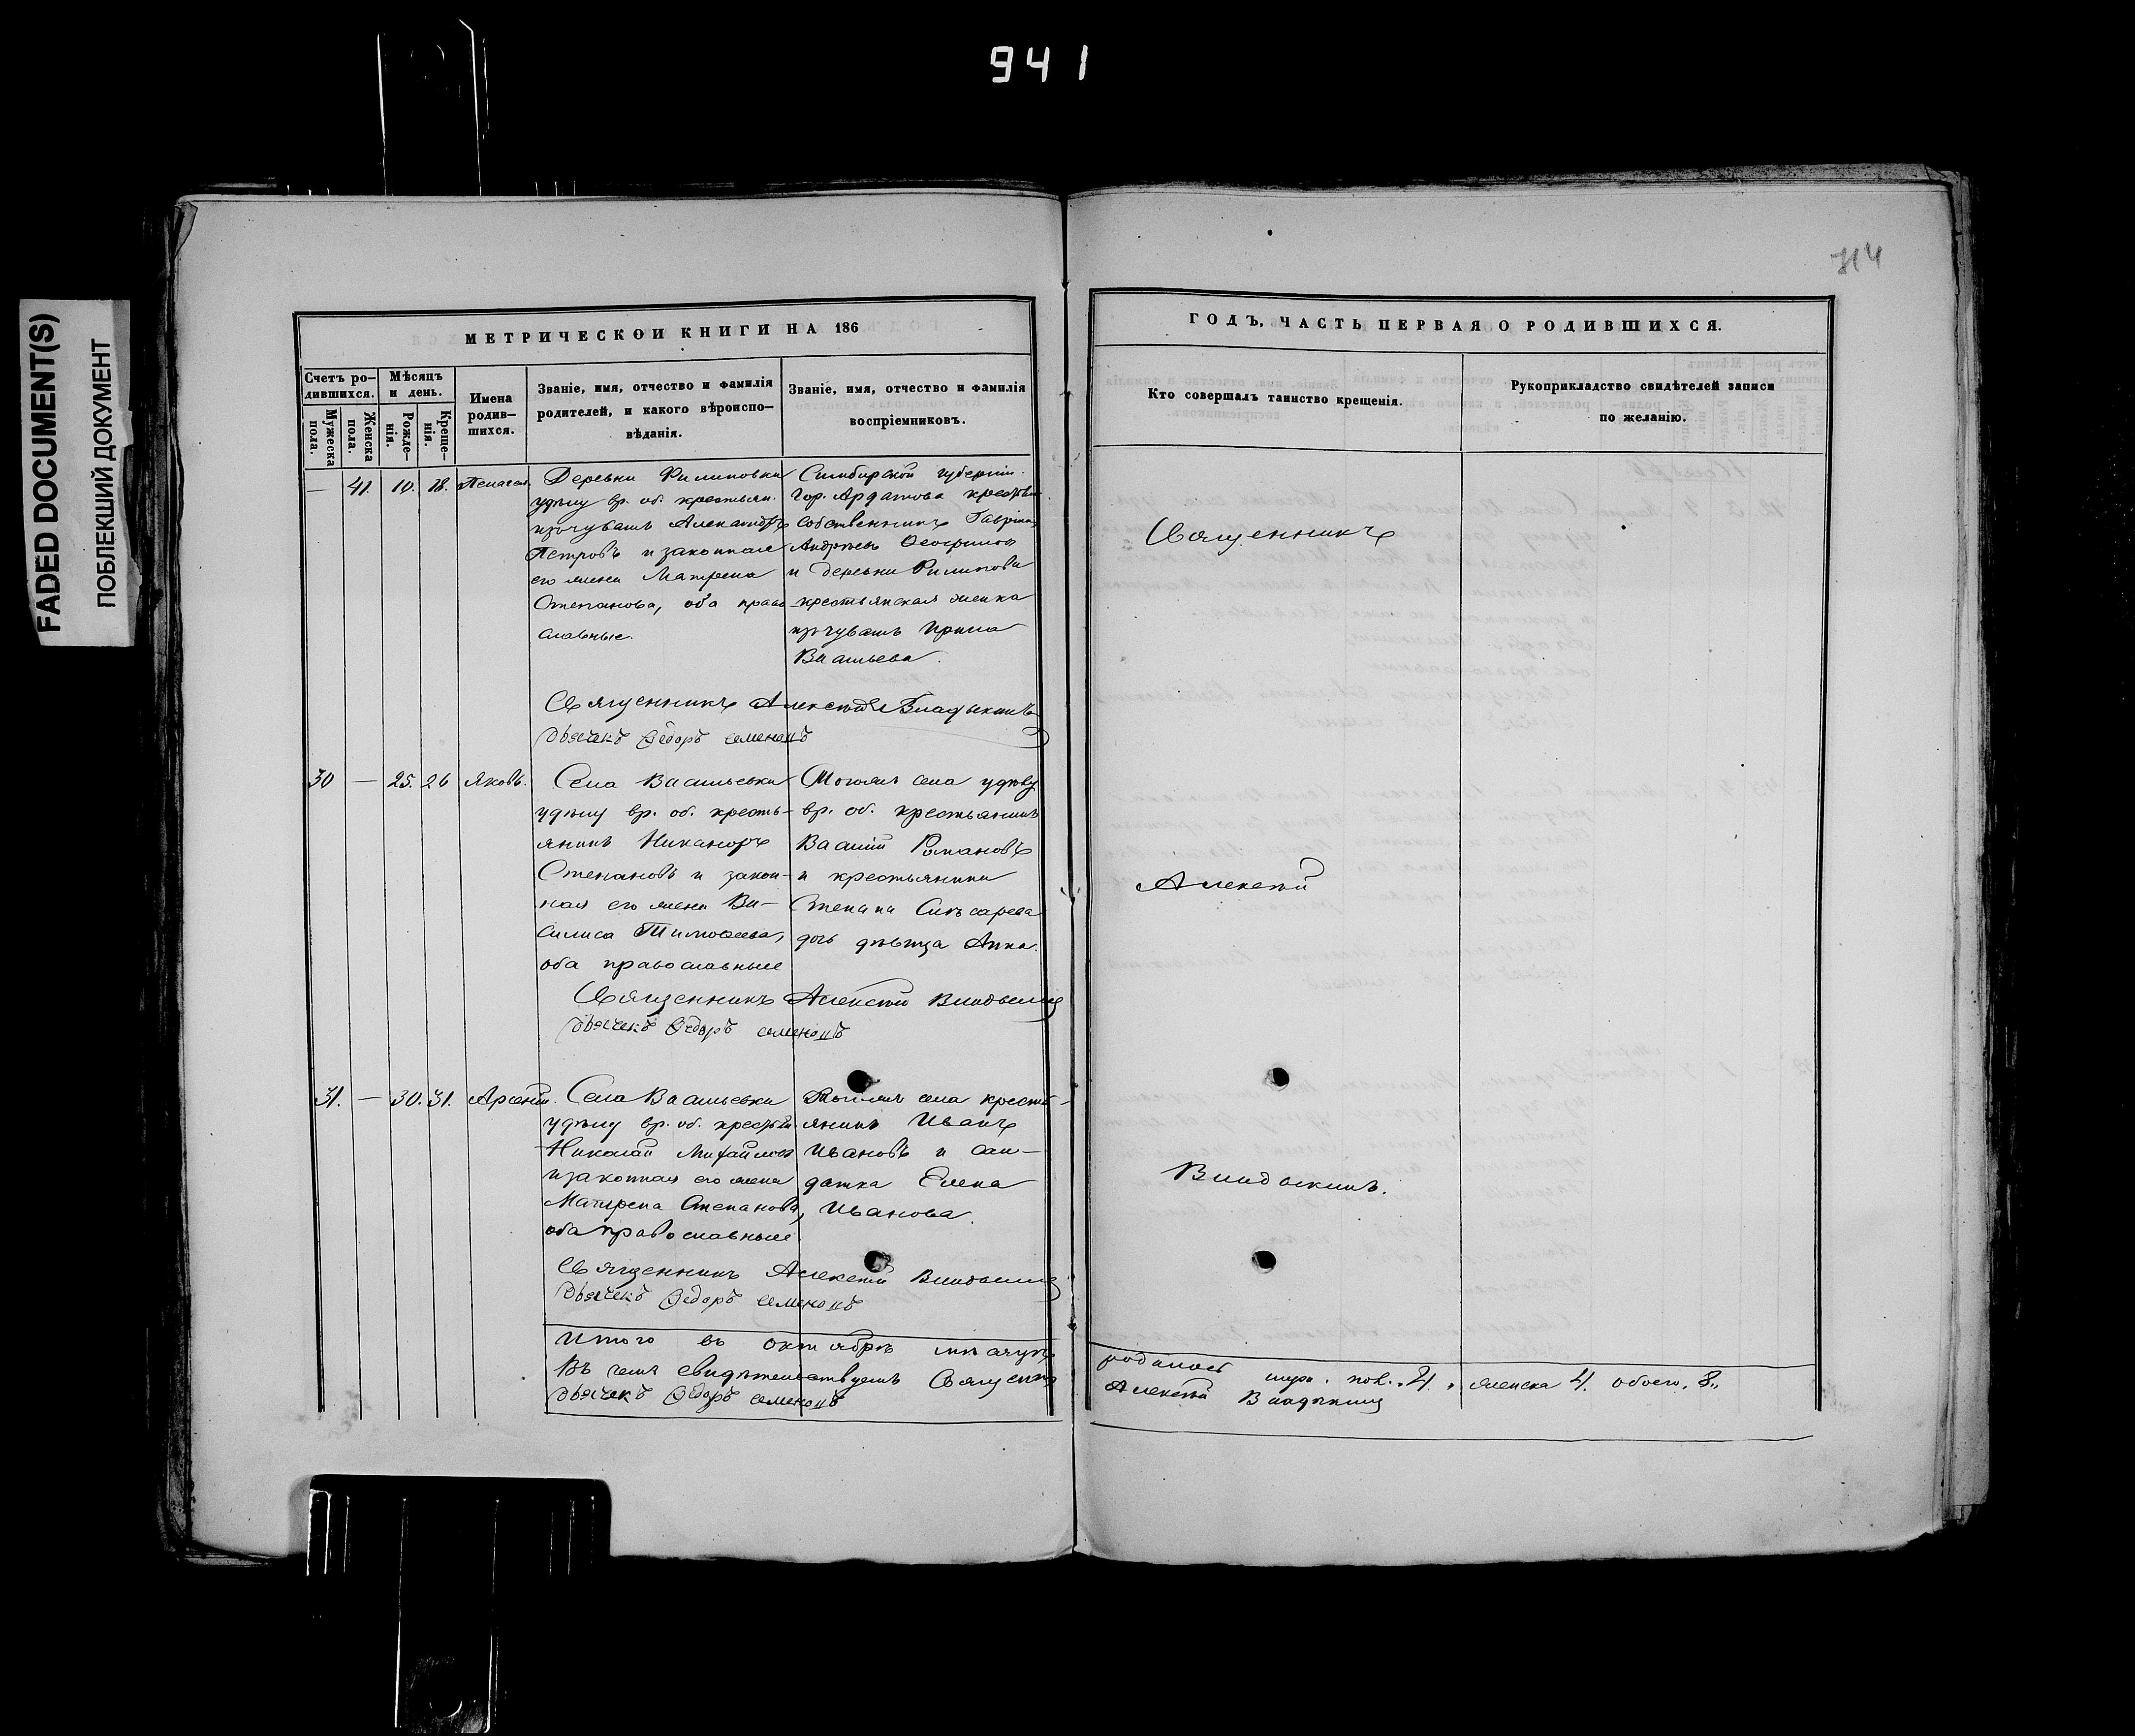 941
FADED DOCUMENT(S)
ПОБЛЕКШИЙ ДОКУМЕНТ
314
МЕТРИЧЕСКОЙ КНИГИ НА 186
Счетъ ро-
дившихся.
Мужеска
пола.
Женска
пола.
Мѣсяцъ
и день.
Рожде-
нія.
Креще-
нія.
Имена
родив-
шихся.
Званіе, имя, отчество и фамилія
родителей, и какого вѣроиспо-
вѣданія.
Званіе, имя, отчество и фамилія
воспріемниковъ.
— 41. 10. 18. Пелагея.
Деревни Филиповки
удѣлу вр. об. крестьян.
изъ чувашъ Александръ
Петровъ и законная
его жена Матрена
Степанова, оба право
славные.
Симбирской губерніи
гор. Ардатова крестьян
собственникъ Гавріилъ
Андреевъ
и деревни Филиповки
крестьянская женка
изъ чувашъ Ирина
Васильева.
Священникъ Алексѣй Владыкинъ
Дьячекъ Ѳедоръ Семеновъ
30 — 25. 26 Яковъ.
Села Васильевки
удѣлу вр. об. кресть-
янинъ Никаноръ
Степановъ и закон-
ная его жена Ва-
силиса Тимоѳеева,
оба православные
Тогожъ села удѣлу
вр. об. крестьянинъ
Василій Романовъ
и крестьянина
Степана Слюсарева
дочь дѣвица Анна.
Священникъ Алексѣй Владыкинъ
Дьячекъ Ѳедоръ Семеновъ
31. — 30. 31. Арсеній.
Села Васильевки
удѣлу вр. об. крестьян
Николай Михайловъ
и законная его жена
Матрена Степанова,
оба православные
Тогожъ села кресть-
янинъ Иванъ
Ивановъ и сол-
датка Елена
Иванова.
Священникъ Алексѣй Владыкинъ
Дьячекъ Ѳедоръ Семеновъ
Итого въ октябрѣ мѣсяцѣ
Въ чемъ свидѣтельствуемъ Священникъ
Дьячекъ Ѳедоръ Семеновъ
ГОДЪ, ЧАСТЬ ПЕРВАЯ О РОДИВШИХСЯ.
Кто совершалъ таинство крещенія.
Рукоприкладство свидѣтелей записи
по желанію.
Священникъ
Алексѣй
Владыкинъ.
родилось муж. пол. 4. женска 4. обоего. 8.
Алексѣй Владыкинъ